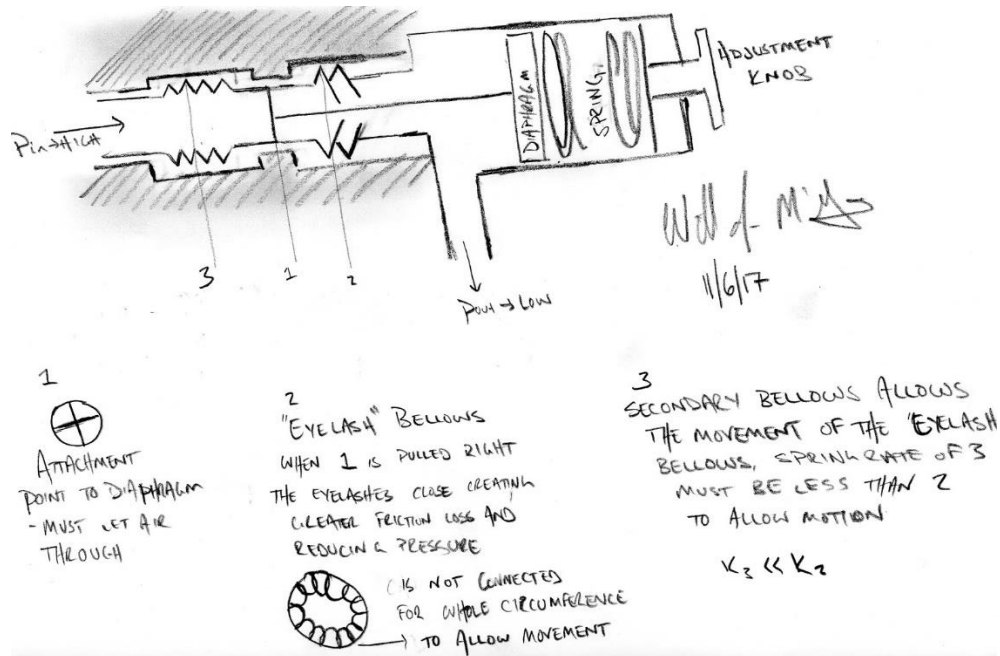 DIAPHRAGM
SPRING
ADJUSTMENT
KNOB
Pin→HIGH
3
1
2
Pout→LOW
11/6/17
1
ATTACHMENT
POINT TO DIAPHRAGM
- MUST LET AIR
THROUGH
2
"EYELASH" BELLOWS
WHEN 1 IS PULLED RIGHT
THE EYELASHES CLOSE CREATING
GREATER FRICTION LOSS AND
REDUCING PRESSURE
IS NOT CONNECTED
FOR WHOLE CIRCUMFERENCE
→ TO ALLOW MOVEMENT
3
SECONDARY BELLOWS ALLOWS
THE MOVEMENT OF THE "EYELASH
BELLOWS, SPRING RATE OF 3
MUST BE LESS THAN 2
TO ALLOW MOTION
K₃ << K₂